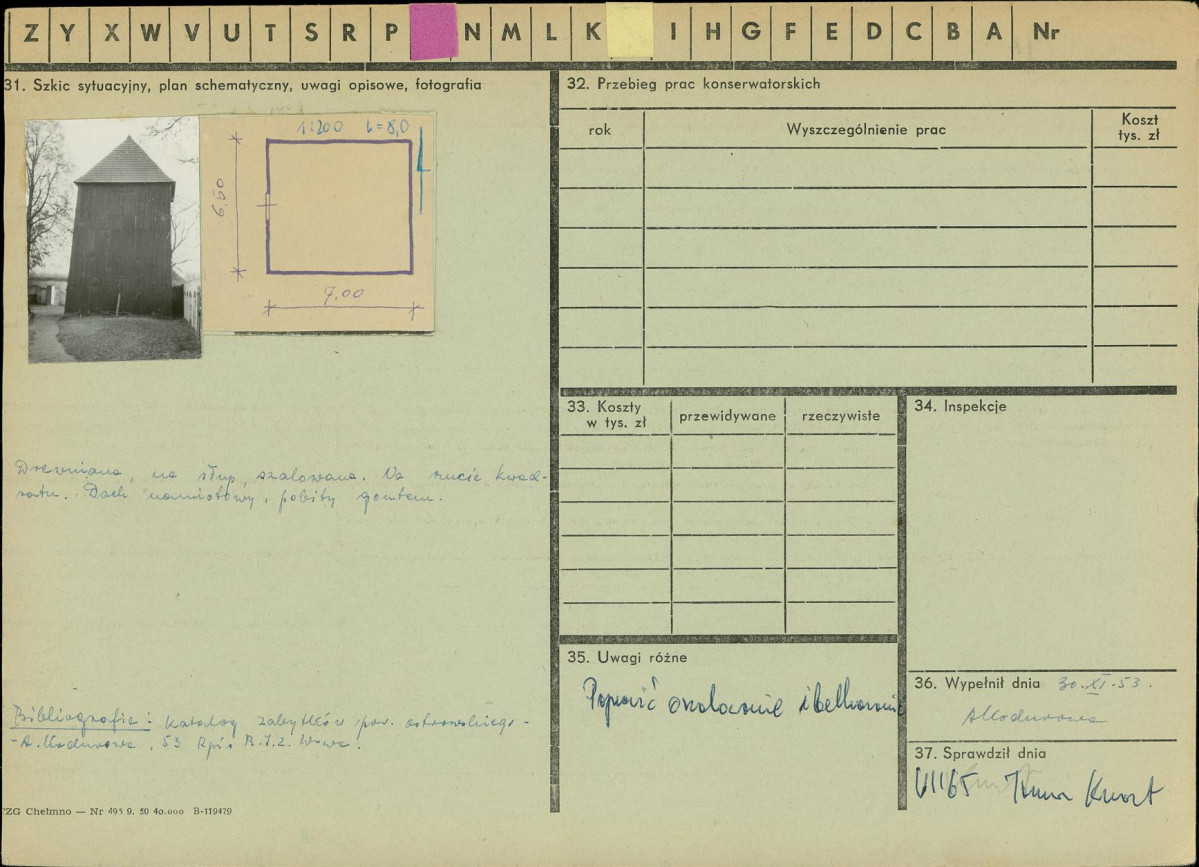 Z Y X W V U T S R P N M L K I H G F E D C B A Nr
31. Szkic sytuacyjny, plan schematyczny, uwagi opisowe, fotografia
1:200 h=8,0
6,50
7,00
Drewniana, na słup, szalowana. Na rzucie kwad-
ratu. Dach namiotowy, pobity gontem.
Bibliografia: Katalog zabytków pow. ostrowskiego -
53 B.I.Z.
ZG Chełmno — Nr 495 9. 50 40.000 B-119479
32. Przebieg prac konserwatorskich
rok Wyszczególnienie prac Koszt
tys. zł
33. Koszty
w tys. zł przewidywane rzeczywiste
34. Inspekcje
35. Uwagi różne
Poprawić oszalowanie i belkowanie
36. Wypełnił dnia 30.XI.53.
37. Sprawdził dnia